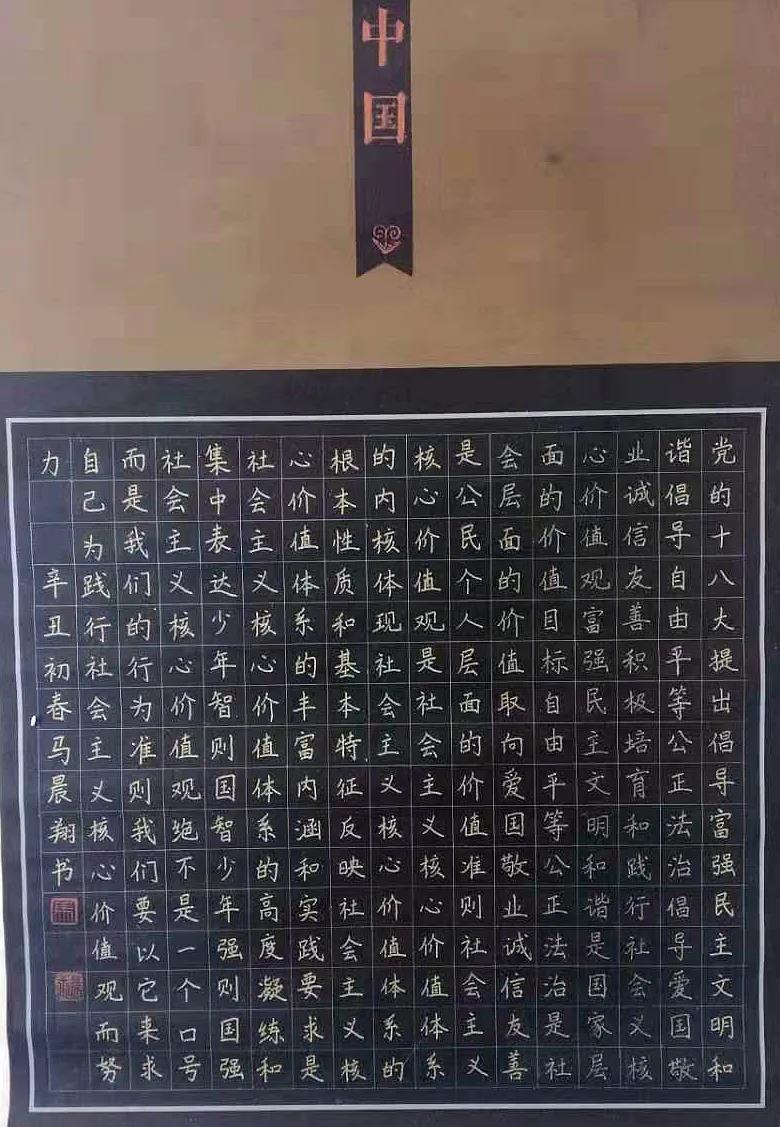 中国
党的十八大提出倡导富强民主文明和
谐倡导自由平等公正法治倡导爱国敬
业诚信友善积极培育和践行社会义核
心价值观富强民主文明和谐是国家层
面的价值目标自由平等公正法治是社
会层面的价值取向爱国敬业诚信友善
是公民个人层面的价值准则社会主义
核心价值观是社会主义核心价值体系
的内核体现社会主义核心价值体系的
根本性质和基本特征反映社会主义核
心价值体系的丰富内涵和实践要求是
社会主义核心价值体系的高度凝练和
集中表达少年智则国智少年强则国强
社会主义核心价值观绝不是一个口号
而是我们的行为准则我们要以它来求
自己为践行社会主义核心价值观而努
力 辛丑初春马晨翔书